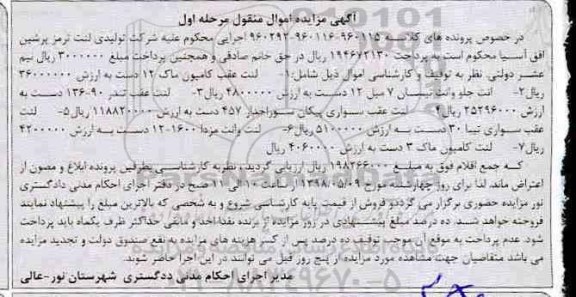 آگهی مزایده اموال منقول مرحله اول
در خصوص پرونده های کلاسه ۹۶۰۱۱۵-۹۶۰۱۱۶-۹۶۰۲۹۲ اجرایی محکوم علیه شرکت تولیدی لنت ترمز پرشین
افق آسیا محکوم است به پرداخت ۱۹۴۶۷۲۱۳۰ ریال در حق خانم صادقی و همچنین پرداخت مبلغ ۳۰۰۰۰۰۰ ریال نیم
عشر دولتی. نظر به توقیف و کارشناسی اموال ذیل شامل:۱- لنت عقب کامیون ماک ۱۲ دست به ارزش ۳۶۰۰۰۰۰۰
ریال۲- لنت جلو وانت نیسان ۷ میل ۱۲ دست به ارزش ۴۸۰۰۰۰۰ ریال۳- لنت عقب تندر ۹۰-۱۳۶ دست به
ارزش ۲۵۲۹۶۰۰۰ ریال۴- لنت عقب سواری پیکان سوراخدار ۴۵۷ دست به ارزش ۱۱۸۸۲۰۰۰۰ ریال۵- لنت
عقب سواری تیبا ۳۰ دست به ارزش ۵۱۰۰۰۰۰ ریال۶- لنت وانت مزدا ۱۶۰۰-۱۲ دست به ارزش ۴۲۰۰۰۰۰
ریال۷- لنت جلو کامیون ماک ۳ دست به ارزش ۴۰۶۰۰۰۰ ریال
که جمع اقلام فوق به مبلغ ۱۹۸۲۶۶۰۰۰ ریال ارزیابی گردید، نظریه کارشناسی بطرفین پرونده ابلاغ و مصون از
اعتراض ماند. لذا برای روز چهارشنبه مورخ ۱۳۹۸/۰۵/۰۹ از ساعت ۱۰ الی ۱۱ صبح در دفتر اجرای احکام مدنی دادگستری
نور مزایده حضوری برگزار می گردد و فروش از قیمت پایه کارشناسی شروع و به شخصی که بالاترین مبلغ را پیشنهاد نمایند
فروخته خواهد شد. ده درصد مبلغ پیشنهادی در روز مزایده از برنده نقدا اخذ و مابقی حداکثر ظرف یکماه باید پرداخت
شود. عدم پرداخت به موقع آن موجب توقیف ده درصد پس از کسر هزینه های مزایده به نفع صندوق دولت و تجدید مزایده
می باشد متقاضیان جهت مشاهده مورد مزایده از پنج روز قبل می توانند در این اجرا حاضر شوند.
مدیر اجرای احکام مدنی دادگستری شهرستان نور-عالی